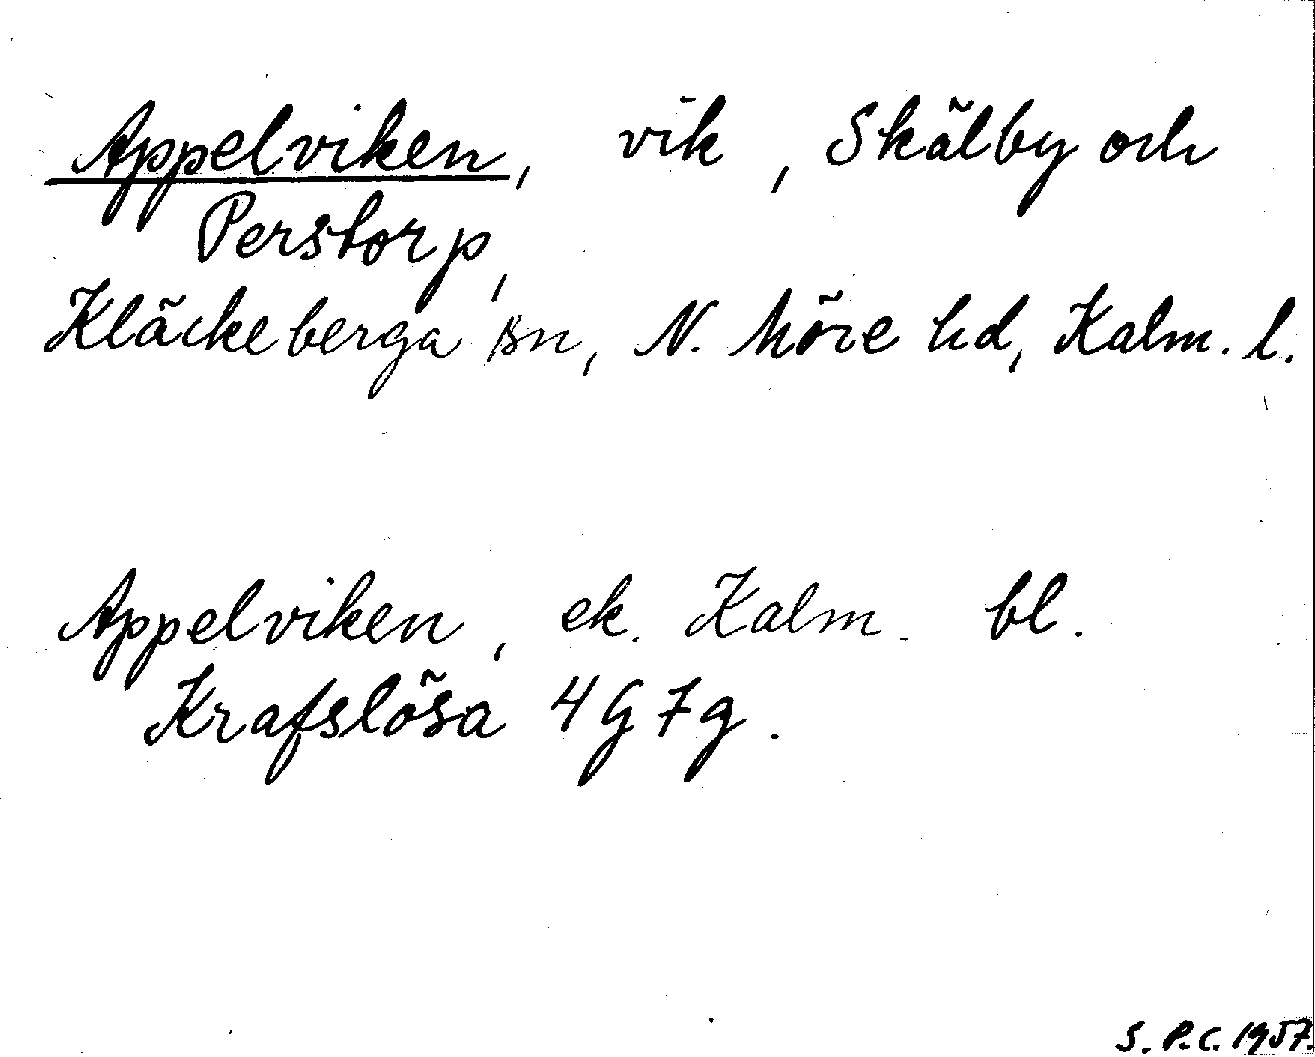 Appelviken, vik, Skälby och
Perstorp,
Kläckeberga sn, N. Möre hd, Kalm. l.
Appelviken, ek. Kalm. bl.
Krafslösa 4G7g.
S. P.C. 1957.